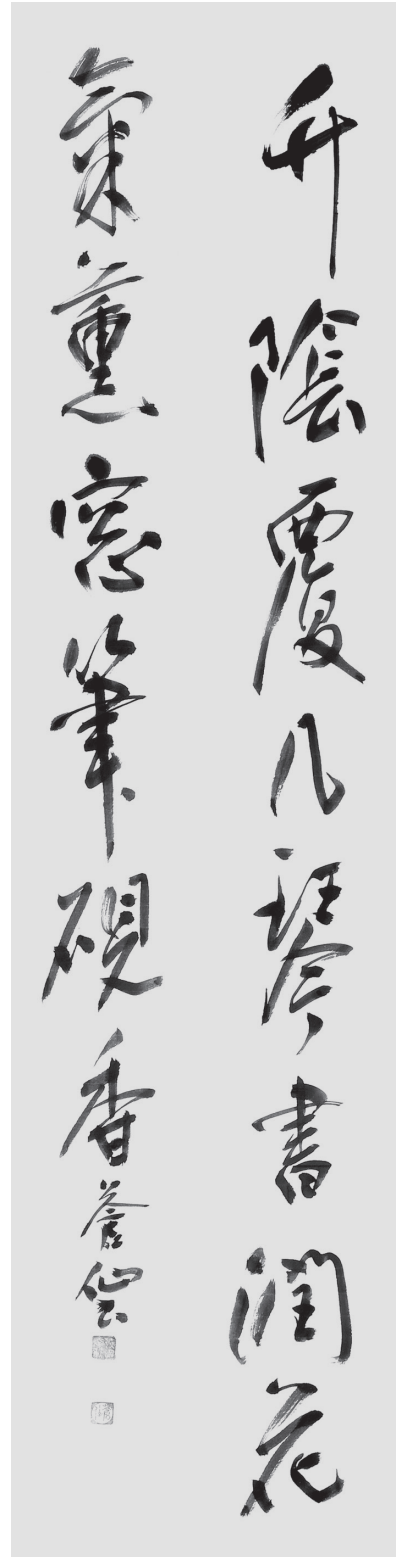 竹陰覆几琴書潤花
氣薰窓筆硯香